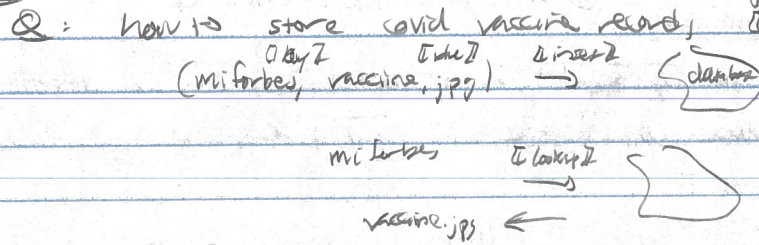 Q: how to store covid vaccine records
[[key]] [[value]] [[insert]]
(miforbes, vacciine.jpg) → database
miforbes [[lookup]] →
vaccine.jpg ←